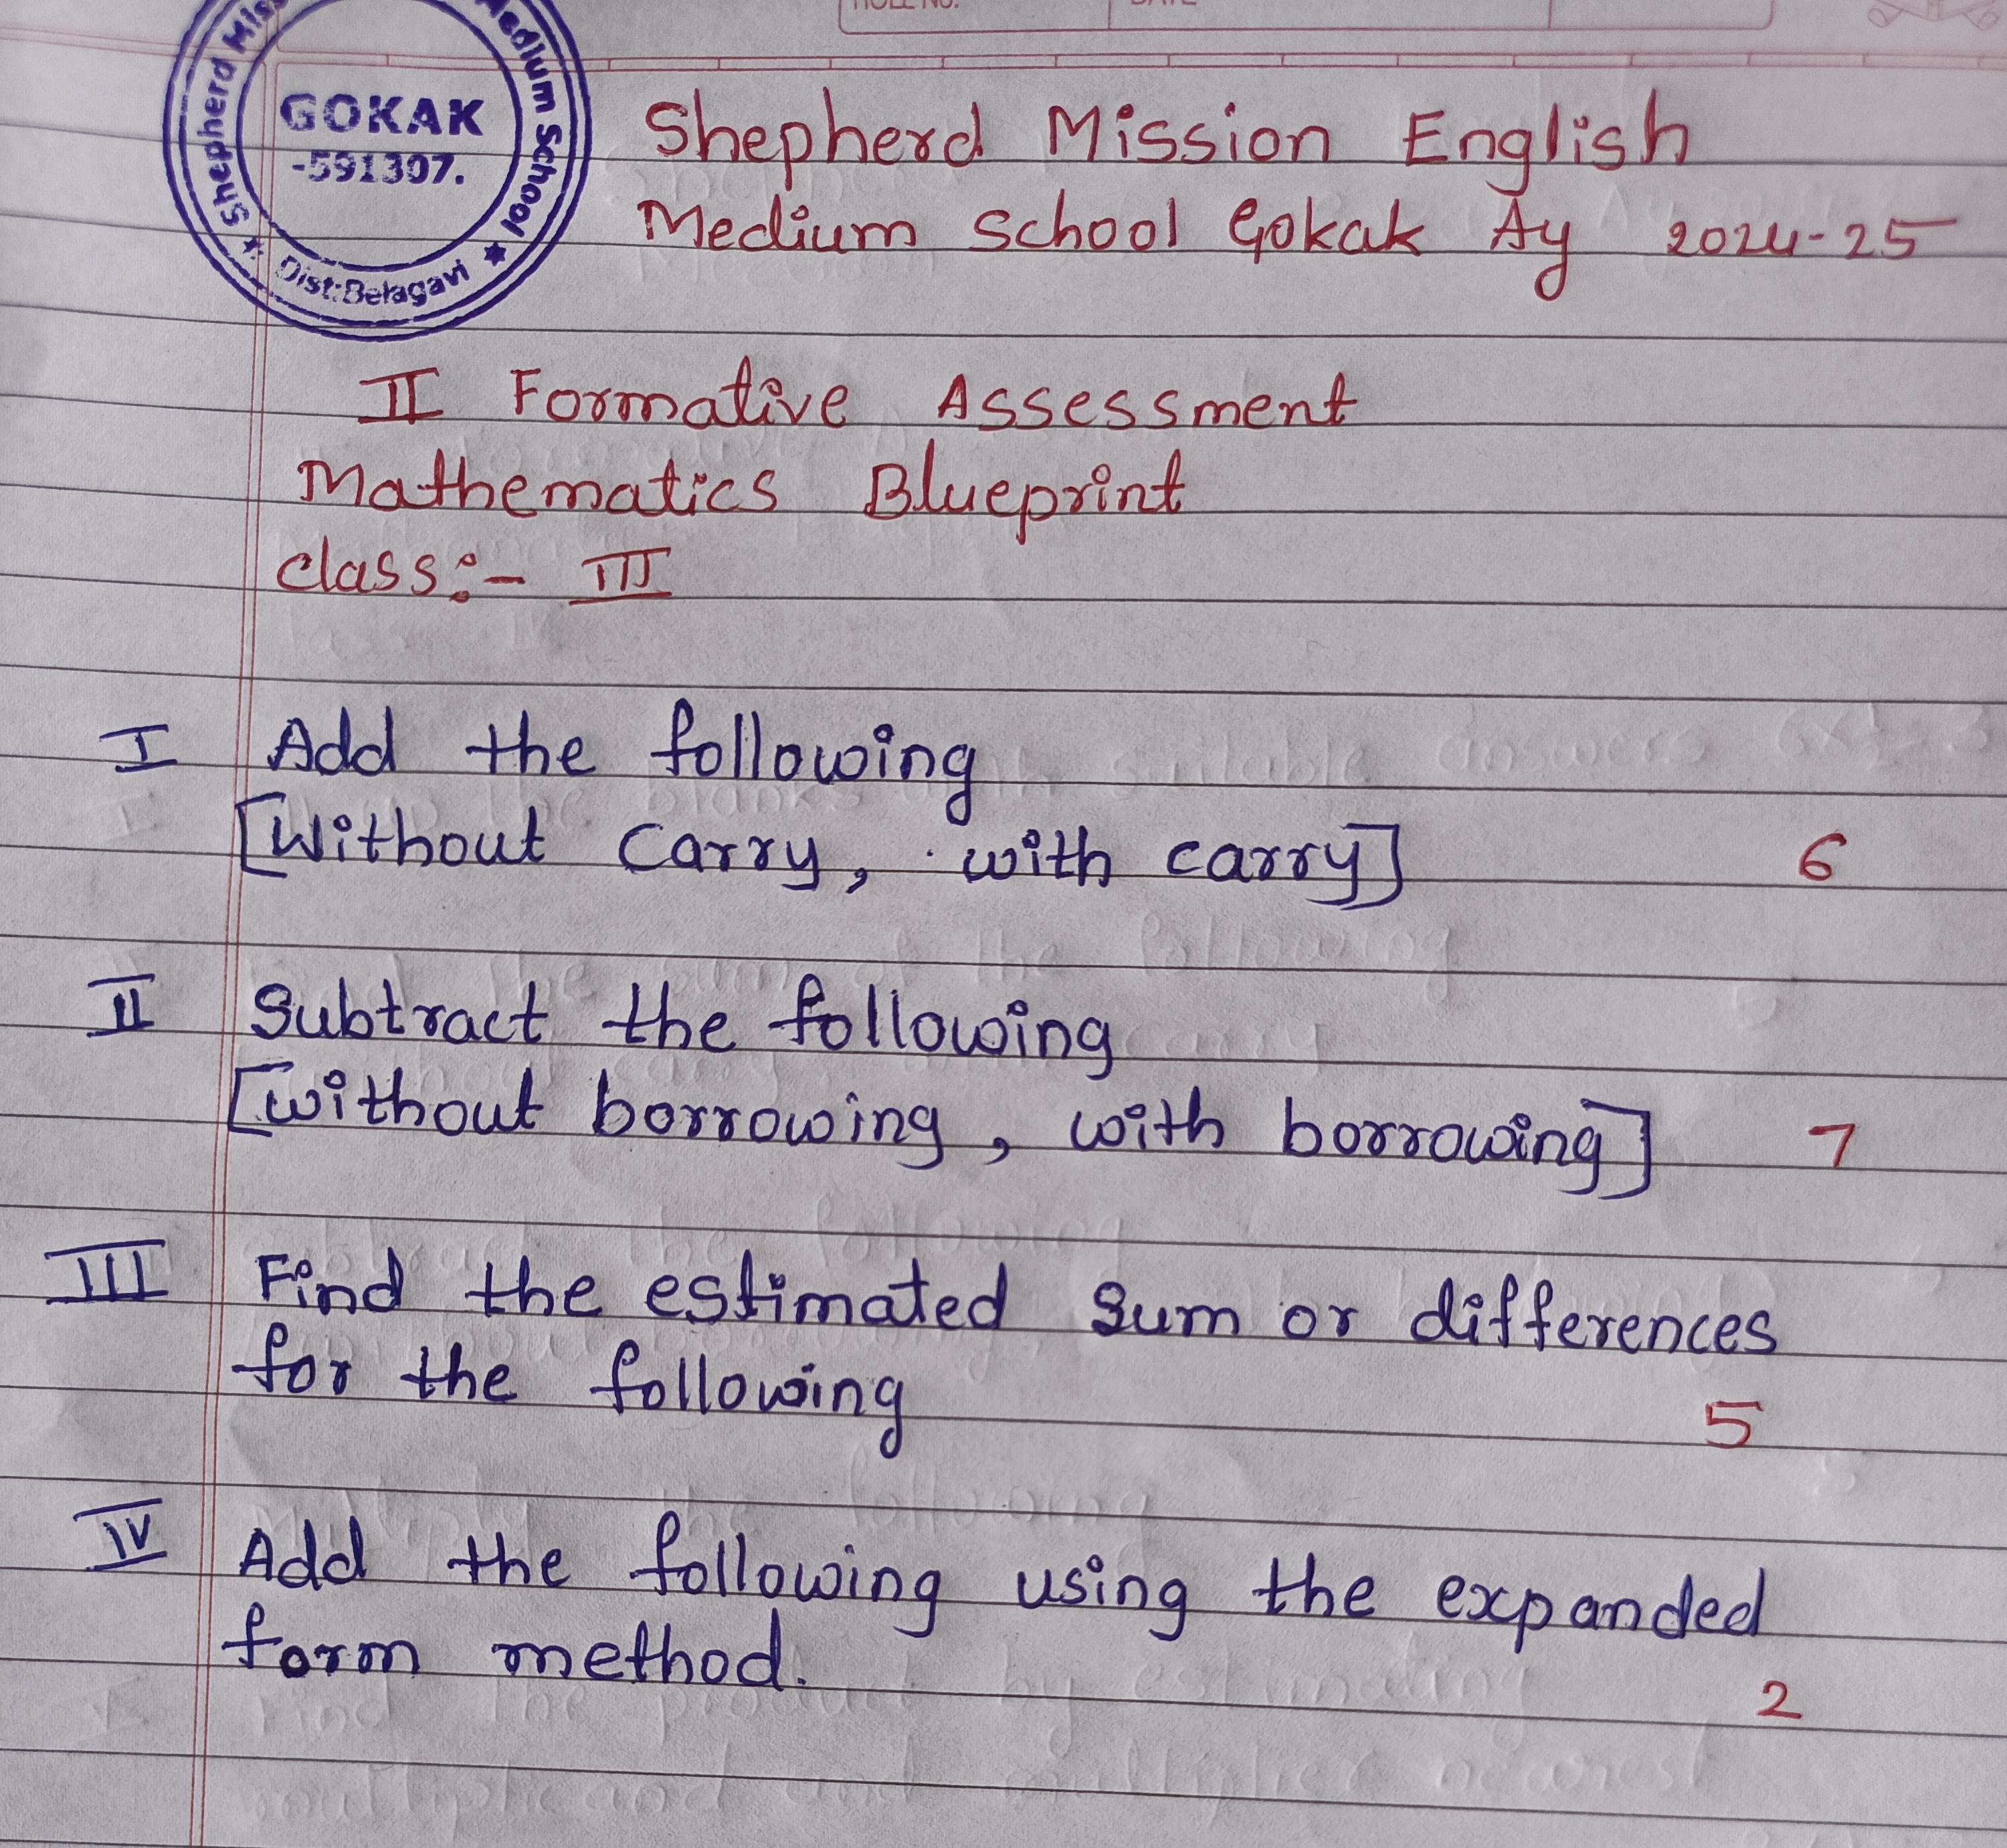 ROLL NO.
DATE
Shepherd Mis
Medium School
GOKAK
-591307.
Dist:Belagavi
Shepherd Mission English
Medium School Gokak Ay 2024-25
II Formative Assessment
Mathematics Blueprint
class:- III
I Add the following
[Without Carry, with carry] 6
II Subtract the following
[without borrowing, with borrowing] 7
III Find the estimated Sum or differences
for the following
5
IV Add the following using the expanded
form method.
2